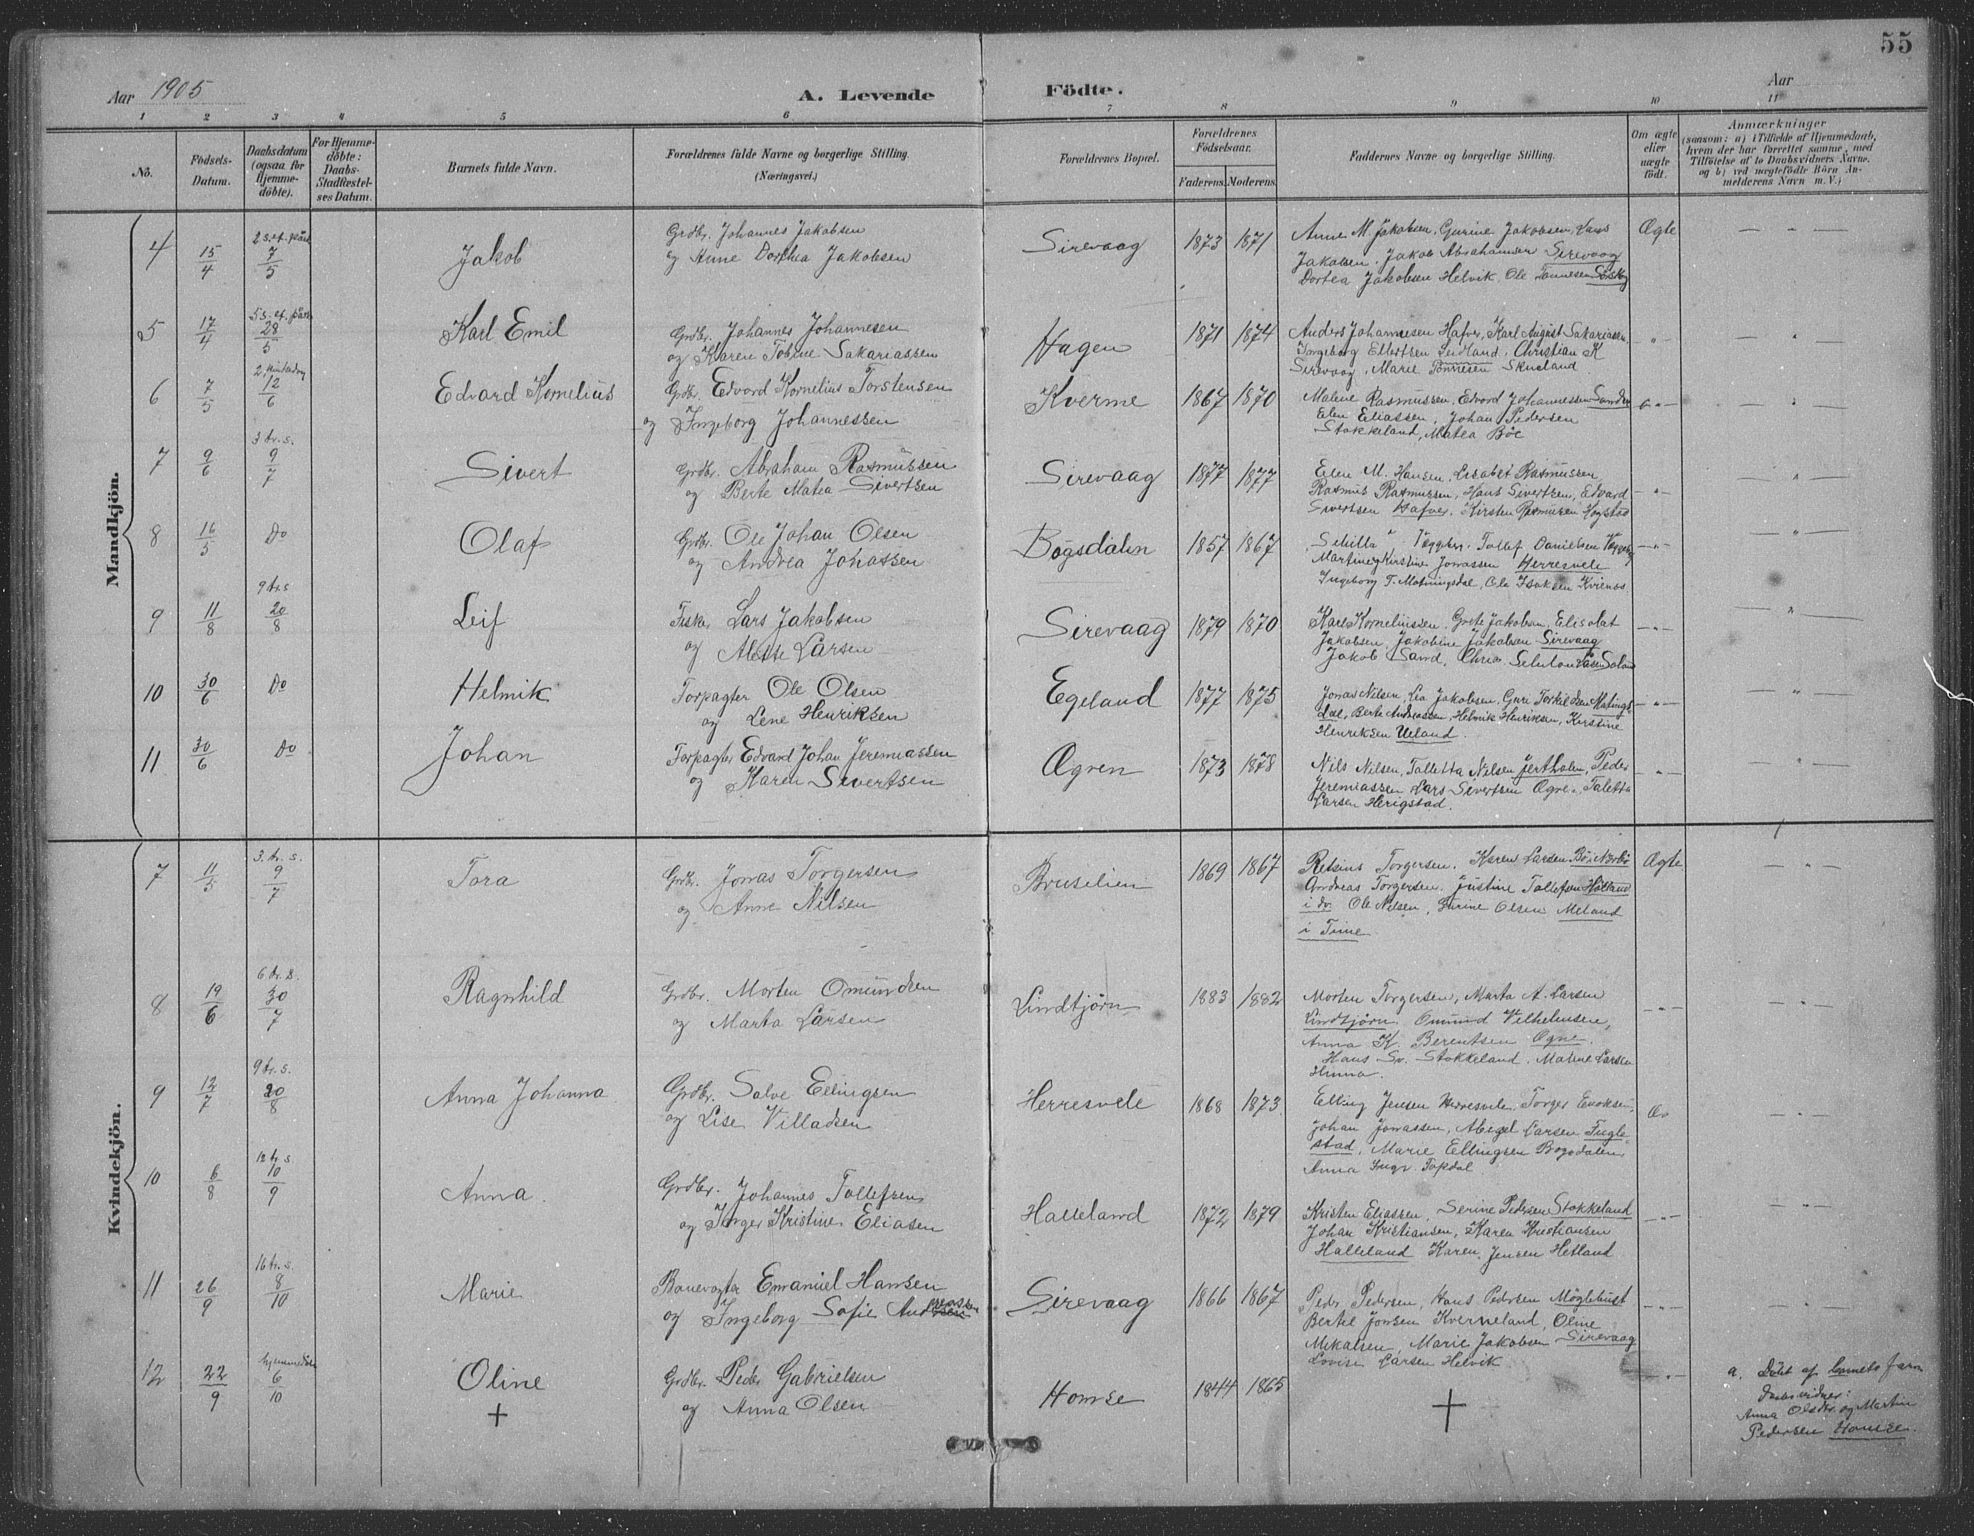 55
Aar 1905
A. Levende
Födte.
Aar
1 2 3 4 5 6 7 8 9 10 11
No.
Födsels-
Datum.
Daabsdatum
(ogsaa for
Hjemme-
döbte).
For Hjemme-
döbte:
Daabs-
Stadfæstel-
ses Datum.
Barnets fulde Navn.
Forældrenes fulde Navne og borgerlige Stilling.
(Næringsvei.)
Forældrenes Bopæl.
Forældrenes
Födselsaar.
Faderens. Moderens.
Faddernes Navne og borgerlige Stilling.
Om ægte
eller
uægte
födt.
Anmærkninger
(saasom: a) i Tilfælde af Hjemmedaab,
hvem der har forrettet samme, med
Tilföielse af to Daabsvidners Navne.
og b) ved uægtefödte Börn An-
melderens Navn m. V.)
Mandkjön.
4 15/4 2 s. ef. påsk 7/5 Jakob
Grdbr. Johannes Jakobsen
og Anne Dorthea Jakobsen
Sirevaag 1873 1871
Anne M. Jakobsen, Gurine Jakobsen, Lars
Jakobsen, Jakob Abrahamsen Sirevaag
Dortea Jakobsen Helvik, Ole Tønnesen
Ægte
5 17/4 5 s. ef. påske 28/5 Karl Emil
Grdbr. Johannes Johannesen
og Karen Tobine Sakariassen
Hagen 1871 1874
Anders Johannesen Hafver, Karl August Sakariasen,
Ingeborg Ellertsen Leidland, Christian K
Sirevaag, Marie Tønnesen Skueland
6 7/5 2. pintsedag 12/6 Edvard Kornelius
Grdbr. Edvard Kornelius Torstensen
og Ingeborg Johannessen
Kverme 1867 1870
Malene Rasmussen, Edvard Johannessen
Elen Eliassen, Johan Pedersen
Stokkeland, Matea Bøe
7 9/6 3 tr. s. 9/7 Sivert
Grdbr. Abraham Rasmussen
og Berte Matea Sivertsen
Sirevaag 1877 1877
Elen M. Hansen, Lisabet Rasmussen
Rasmus Rasmussen, Hans Sivertsen, Edvard
Sivertsen Hafver, Kirsten Rasmusen Hogstad
8 16/5 Do Olaf
Grdbr. Ole Johan Olsen
og Andrea Johassen
Bøgsdalen 1857 1867
Tollef Danielsen
Kirstine Jonassen Herresvele
Ingeborg T. Matningsdal, Ole Isaksen
9 11/8 9 tr. s 20/8 Leif
Fisker Lars Jakobsen
og Larsen
Sirevaag 1879 1870
Karl Kornelinssen, Grete Jakobsen, Elisabat
Jakobsen, Jakobine Jakobsen Sirevaag
Jakob Sand,
10 30/6 Do Helmik
Forpagter Ole Olsen
og Lene Henriksen
Egeland 1877 1875
Jonas Nilsen, Lea Jakobsen, Guri Torkildsen Matings-
dal, Berte Andreassen, Helmik Henriksen, Kirstine
Henriksen Ueland.
11 30/6 Do Johan
Forpagter Edvard Johan Jeremiassen
og Karen Sivertsen
Ogren 1873 1878
Nils Nilsen, Talletta Nilsen, Peder
Jeremiassen Lars Sivertsen Ogre., Taletta
Larsen Herigstad.
Kvindekjön.
7 11/5 3. tr. s. 9/7 Tora
Grdbr. Jonas Torgersen
og Anne Nilsen
Brusilien 1869 1867
Torgersen, Karen Larsen
Andreas Torgersen, Justine Tollefsen
i do. Ole Nilsen, Gurine Olsen Meland
i Time
Ægte
8 19/6 6 tr. s. 30/7 Ragnhild
Grdbr. Morten Omundsen
og Marta Larsen
Lindtjørn 1883 1882
Morten Torgersen, Marta A. Larsen
Lindtjørn, Omund Vilhelmsen,
Anna K. Berentsen Ogne.
Hans Sv. Stokkeland, Maline Larsen
Hinna.
9 12/7 9 tr. s. 20/8 Anna Johanna
Grdbr. Salve Ellingsen
og Lise Villadsen
Herresvele 1868 1873
Elling Jensen Herresvele, Torger
Johan Jonassen, Larsen Fugle-
stad, Marie Ellingsen Bogsdalen,
Anna Ingr. Topdal.
10 6/8 12 tr. s 10/9 Anna.
Grdbr. Johannes Tollefsen
og Torger Kristine Eliasen
Halleland 1872 1879
Kristen Eliassen, Serine Pedersen Stokkeland
Johan Kristiansen, Karen Kristiansen
Halleland Karen Jensen Hetland
11 26/9 16 tr. s. 8/10 Marie
Banevogter Emanuel Hansen
og Ingeborg Sofie
Sirevaag 1866 1867
Peder Pedersen, Hans Pedersen Møglebust
Bertel Jonsen Kverneland, Oline
Mikalsen, Marie Jakobsen Sirevaag
Lovise Larsen Helvik
12 22/9 hjemmedöbt 6/10 Oline
+
Grdbr. Peder Gabrielsen
og Anna Olsen
Homse 1844 1865
+
a. Döbt af barnets farm
daabsvidner:
Anna Olsdtr. og Martin
Pedersen Homse.